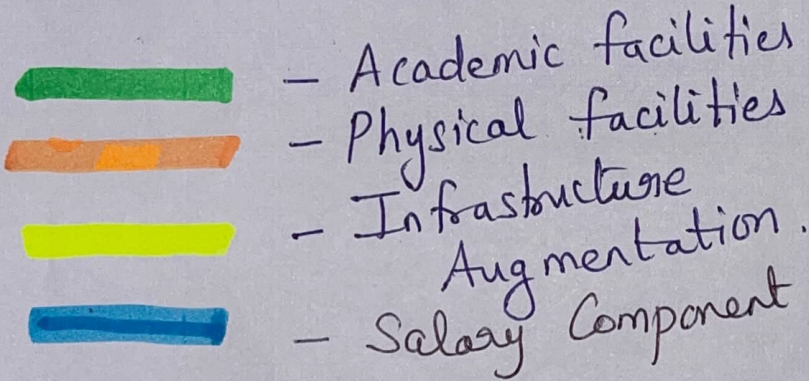 - Academic facilities
- Physical facilities
- Infrastructure
Augmentation.
- Salary Component